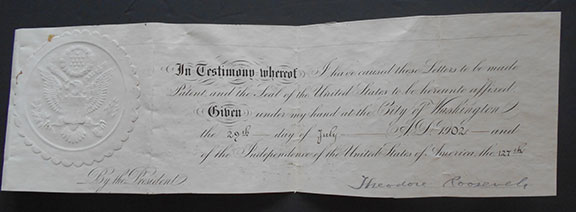 In Testimony whereof I have caused these Letters to be made
Patent, and the Seal of the United States to be hereunto affixed.
Given under my hand at the City of Washington
the 29th day of July A.D. 1902, and
of the Independence of the United States of America, the 127th
By the President
Theodore Roosevelt